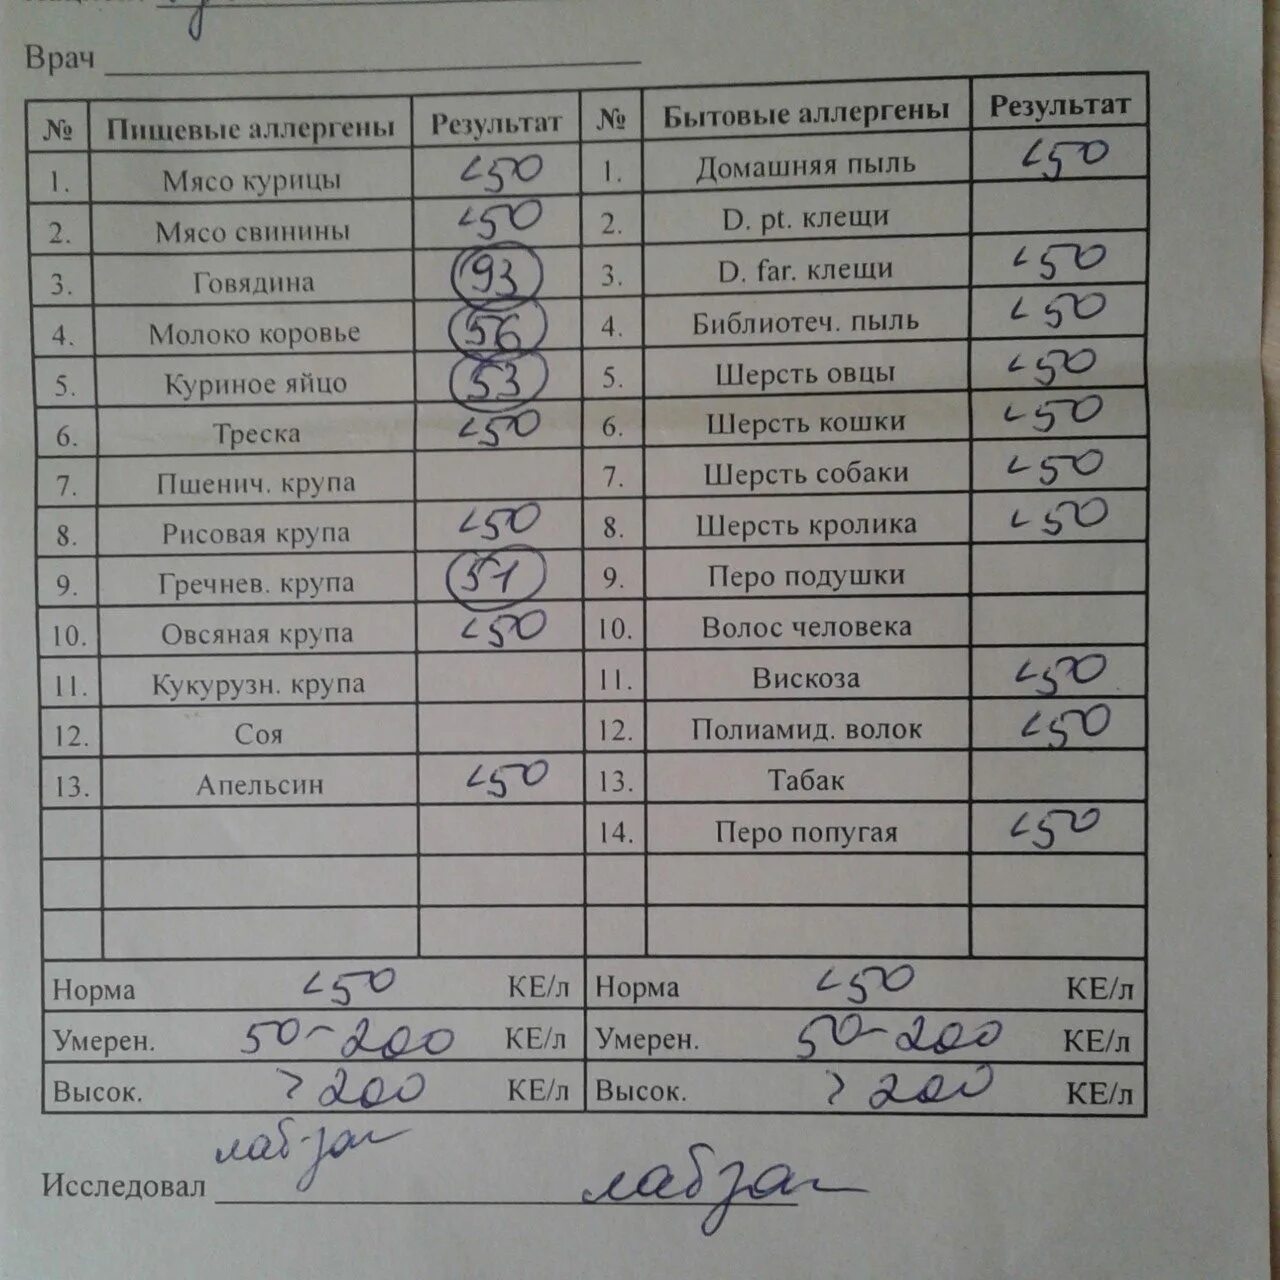 Врач
№ Пищевые аллергены Результат № Бытовые аллергены Результат
1. Мясо курицы <50 1. Домашняя пыль <50
2. Мясо свинины <50 2. D. pt. клещи
3. Говядина 93 3. D. far. клещи <50
4. Молоко коровье 56 4. Библиотеч. пыль <50
5. Куриное яйцо 53 5. Шерсть овцы <50
6. Треска <50 6. Шерсть кошки <50
7. Пшенич. крупа 7. Шерсть собаки <50
8. Рисовая крупа <50 8. Шерсть кролика <50
9. Гречнев. крупа 51 9. Перо подушки
10. Овсяная крупа <50 10. Волос человека
11. Кукурузн. крупа 11. Вискоза <50
12. Соя 12. Полиамид. волок <50
13. Апельсин <50 13. Табак
14. Перо попугая <50
Норма <50 КЕ/л Норма <50 КЕ/л
Умерен. 50-200 КЕ/л Умерен. 50-200 КЕ/л
Высок. >200 КЕ/л Высок. >200 КЕ/л
Исследовал